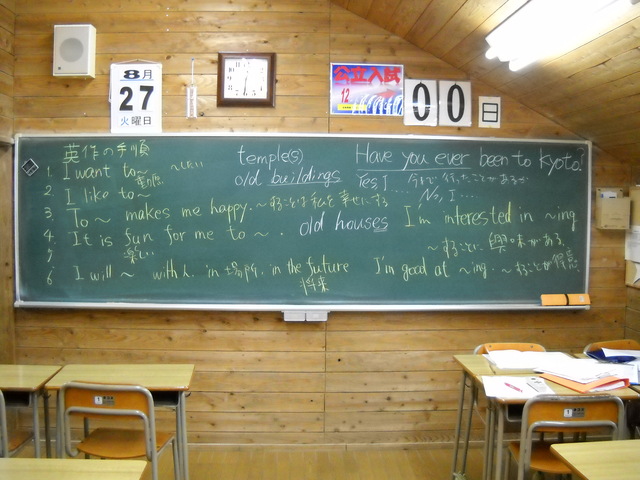 8月
27
火曜日
公立入試
12
00
日
英作の手順
temple(s)
Have you ever been to Kyoto?
1. I want to~ ~したい
old buildings
Yes I... 今まで行ったことがあるか
2. I like to~
No, I...
3. To ~ makes me happy. ~することは私を幸せにする
old houses
I'm interested in ~ing
4. It is fun for me to ~.
~することに興味がある.
5
楽しい
6 I will ~ with人. in 場所. in the future
将来
I'm good at ~ing. ~することが得意